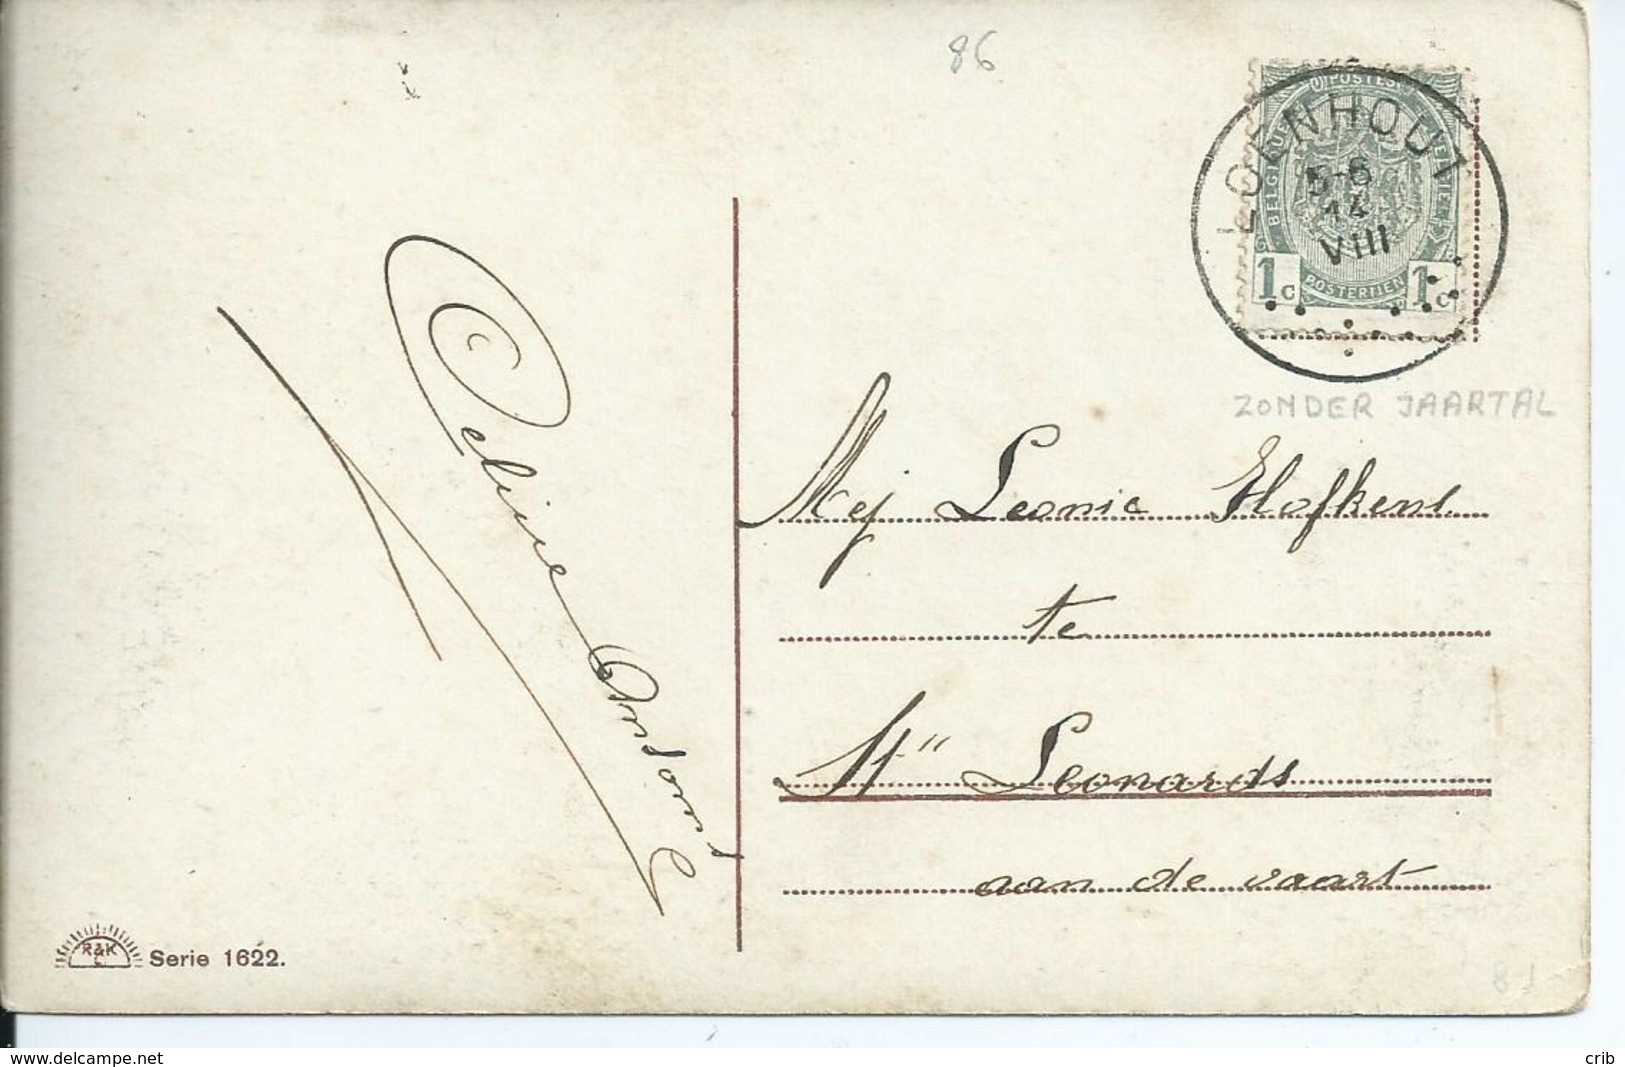 86
POSTES
BELGIQUE
BELGIË
1c
1c
POSTERIJEN
LOENHOUT
5-6
14
VIII
ZONDER JAARTAL
Mej Leonie Hofkens
te
St" Leonards
aan de vaart
Celine
R&K Serie 1622.
81
www.delcampe.net
crib